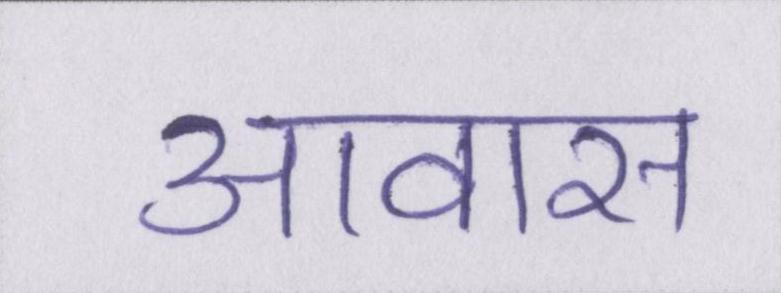 आवास